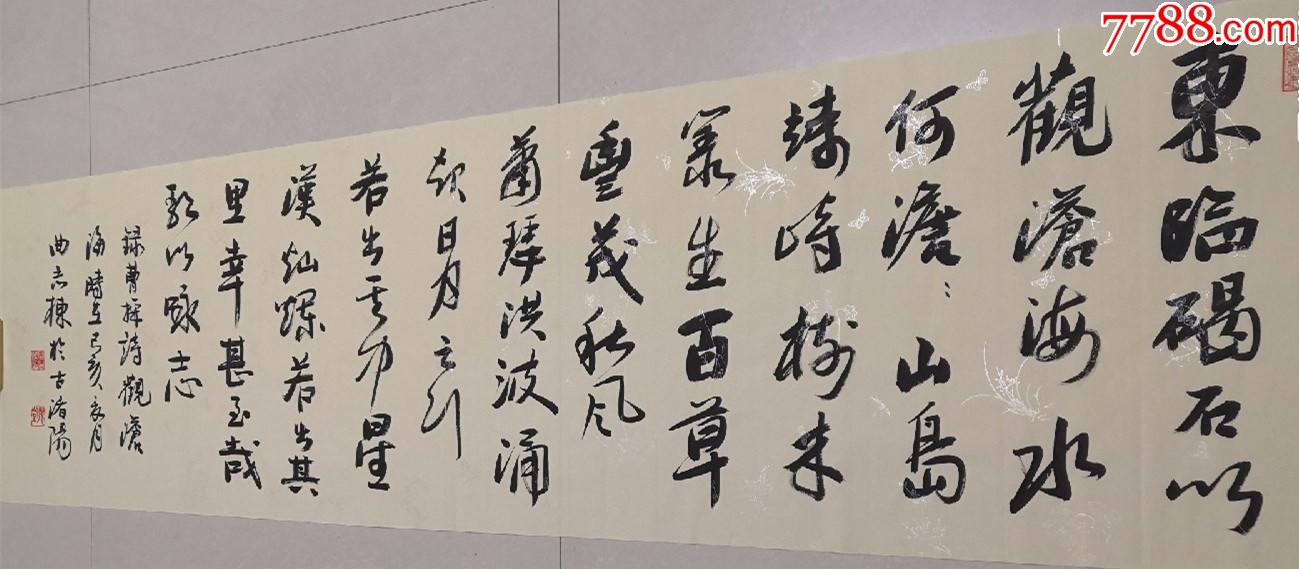 7788.com
東臨碣石以
觀滄海水
何澹〻山島
竦峙樹木
叢生百草
豐茂秋風
蕭瑟洪波涌
起日月之行
若出其中星
漢燦爛若出其
里幸甚至哉
歌以詠志
録曹操詩觀滄
海時在己亥月
曲志棟於古渚陽